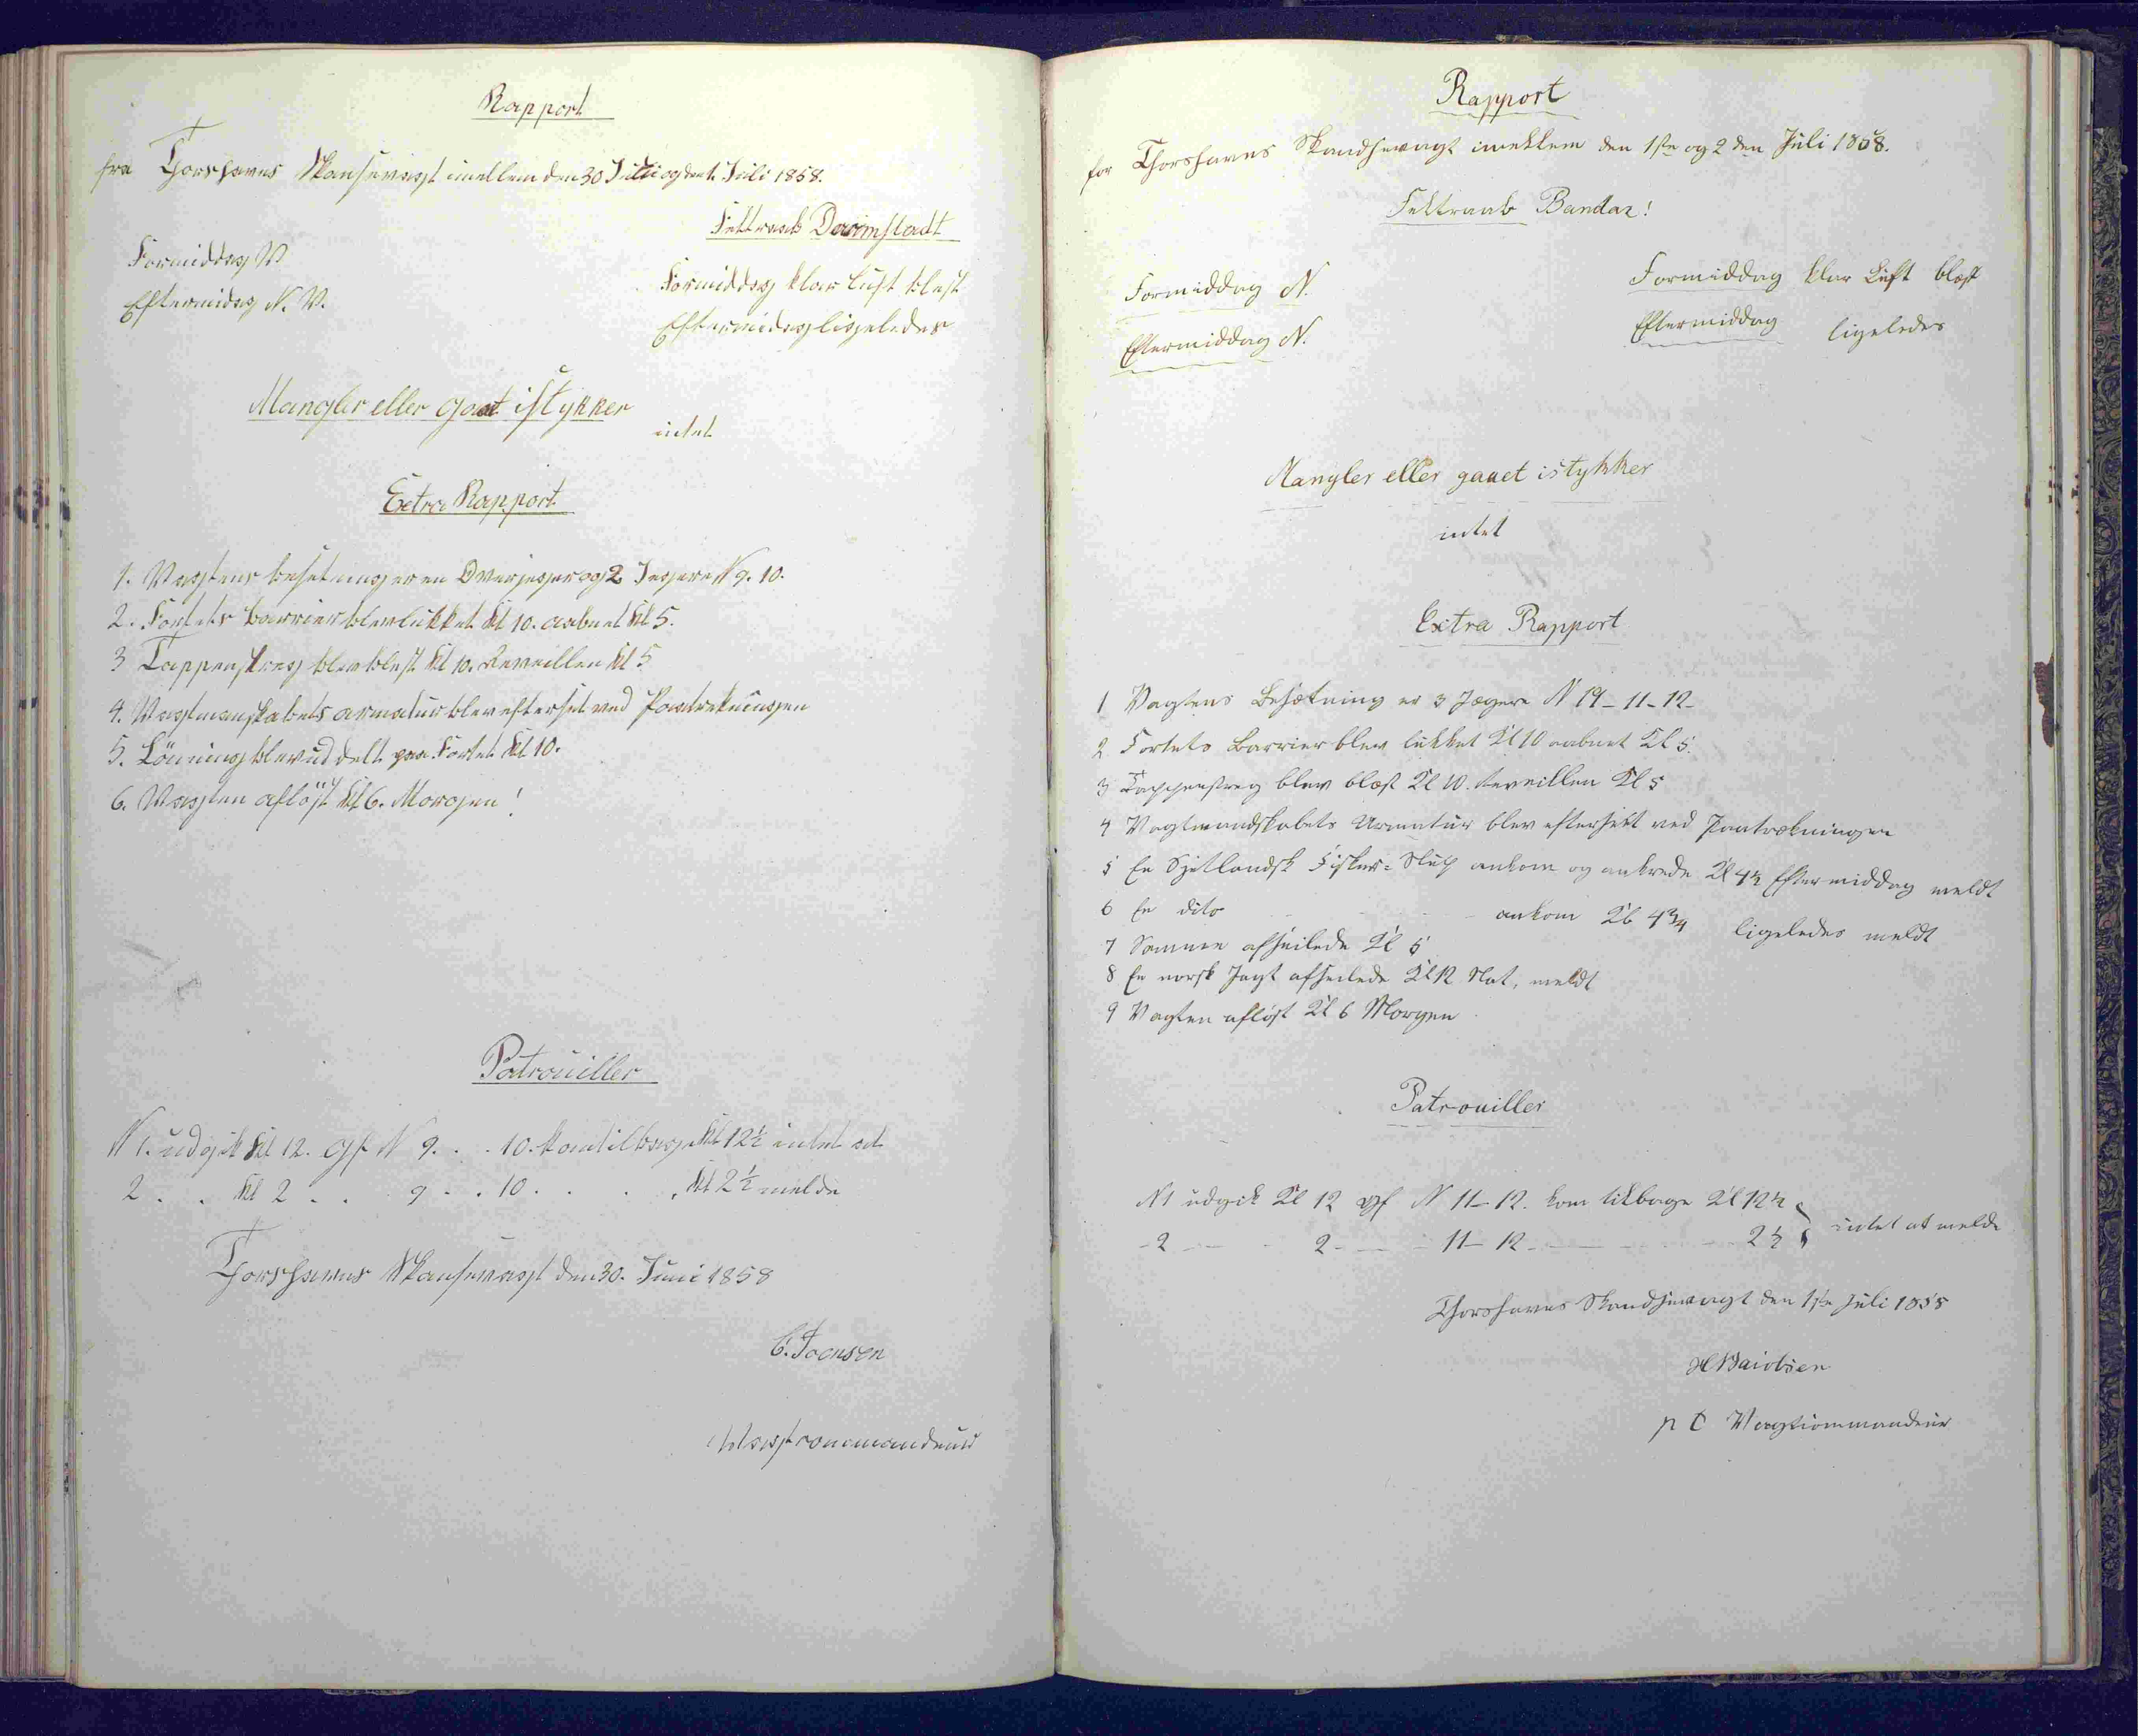 Rapport
fra Thorshavns Skansevagt imellem den 30 Juni og den 1. Juli 1858.
Feltraab Darmstadt
Formiddag V
Eftermidag N. V.
Formiddag klar luft blest
Eftermidag ligeledes
Mangler eller gaat istykker
intet
Extra Rapport
1. Vagtens besetning er en Overjeger og 2 Jegere N 9. 10.
2. Fortets barrier blev lukket Kl 10. aabnet Kl 5.
3 Tappenstreg blev blest Kl 10. Reveillen Kl 5
4. Vagtmanskabets armatur blev efterset ved Paatrekningen
5. Lönning blev uddelt paa Fortet Kl 10.
6. Vagten aflöst Kl 6. Morgen!
Patrouiller
N 1. udgik Kl 12. Gf N 9. . . 10. kom tilbage Kl 12½ intet at
2 . . Kl 2 . . 9 . . 10 . . . . Kl 2½ melde
Thorshavns Skansevagt den 30. Juni 1858
C. Joensen
Vagtcommandeur
Rapport
for Thorshavns Skandsevagt imellem den 1ste og 2den Juli 1858.
Feltraab Bandar!
Formiddag N.
Eftermiddag N.
Formiddag klar Luft blæst
Eftermiddag ligeledes
Mangler eller gaaet istykker
intet
Extra Rapport
1 Vagtens Besætning er 3 Jægere N 19 - 11 - 12 -
2 Fortets Barrier blev lukket Kl 10 aabnet Kl 5.
3 Tappenstreg blev blæst Kl 10. Reveillen Kl 5
4 Vagtmandskabets Armatur blev efterseet ved Paatrækningen
5 En Sjetlandsk Fisker=Slup ankom og ankrede Kl 4½ Eftermiddag meldt
6 En dito ankom Kl 4¾ ligeledes meldt
7 Samme afseilede Kl 5
8 En norsk Jagt afseilede Kl 12 Nat, meldt
9 Vagten afløst Kl 6 Morgen
Patrouiller
N 1 udgik Kl 12 Gf N 11 - 12. kom tilbage Kl 12½
- 2 - - 2 - - 11 - 12 - - 2½ intet at melde
Thorshavns Skandsevagt den 1ste Juli 1858
p t Vagtcommandeur